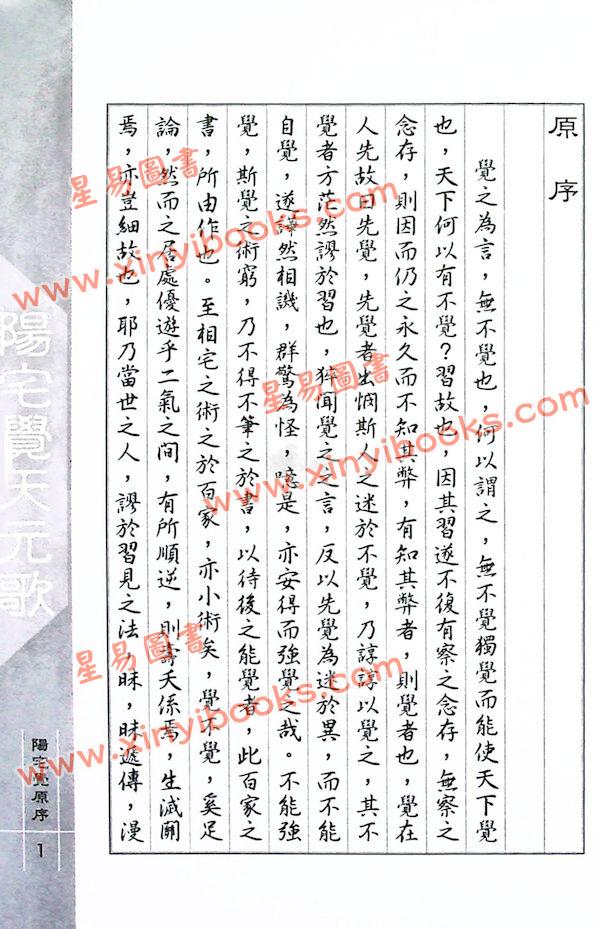 原序
覺之為言，無不覺也，何以謂之，無不覺獨覺而能使天下覺
也，天下何以有不覺？習故也，因其習遂不復有察之念存，無察之
念存，則因而仍之永久而不知其弊，有知其弊者，則覺者也，覺在
人先故曰先覺，先覺者出憫斯人之迷於不覺，乃諄諄以覺之，其不
覺者方茫然謬於習也，猝聞覺之之言，反以先覺為迷於異，而不能
自覺，遂譁然相譏，群驚為怪，噫是，亦安得而強覺之哉。不能強
覺，斯覺之術窮，乃不得不筆之於書，以待後之能覺者，此百家之
書，所由作也。至相宅之術之於百家，亦小術矣，覺不覺，奚足
論，然而之居處優遊乎二氣之間，有所順逆，則壽夭係焉，生滅關
焉，亦豈細故也，耶乃當世之人，謬於習見之法，昧，昧遞傳，漫
陽宅覺天元歌
陽宅覺原序
1
星易圖書
www.xinyibooks.com
星易圖書
www.xinyibooks.com
星易圖書
www.xinyibooks.com